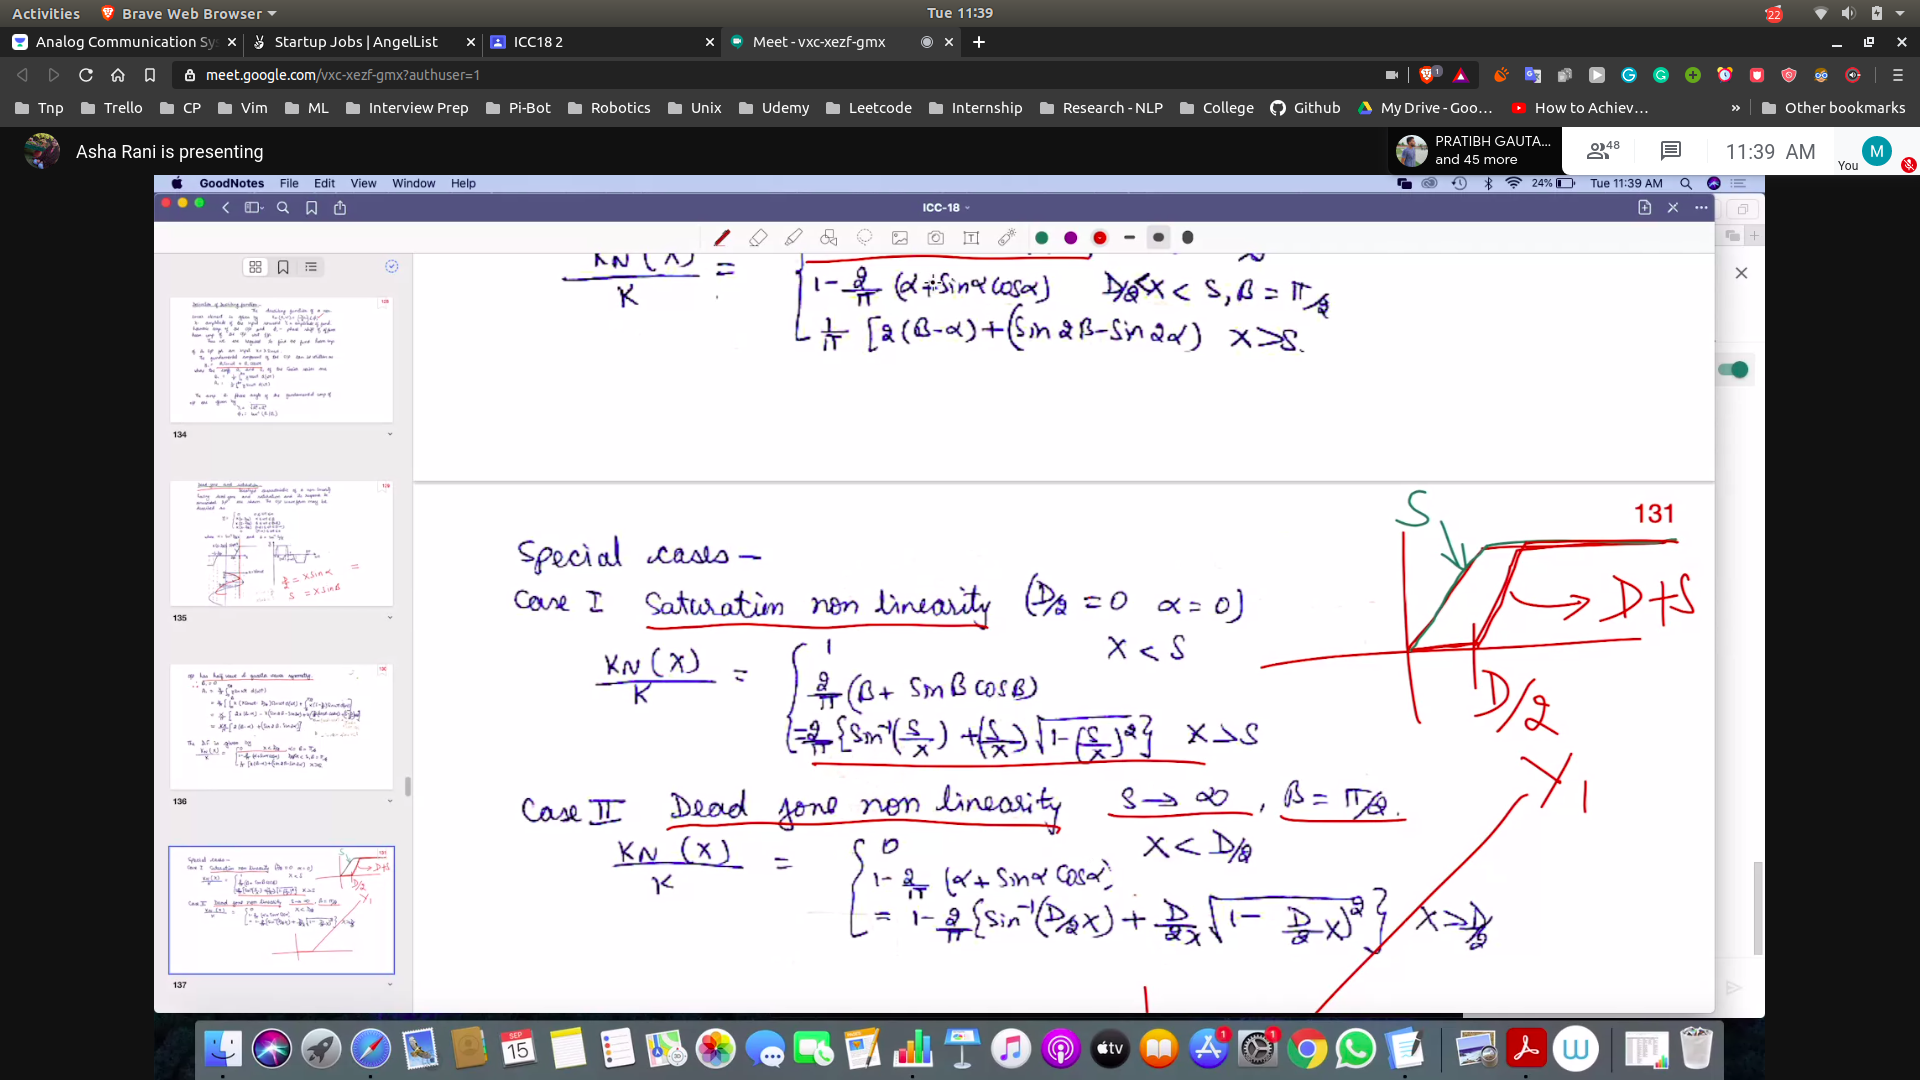 Activities Brave Web Browser Tue 11:39 22
Analog Communication Sy Startup Jobs | AngelList ICC18 2 Meet - vxc-xezf-gmx
meet.google.com/vxc-xezf-gmx?authuser=1
Tnp Trello CP Vim ML Interview Prep Pi-Bot Robotics Unix Udemy Leetcode Internship Research - NLP College Github My Drive - Goo... How to Achiev... » Other bookmarks
Asha Rani is presenting
PRATIBH GAUTA...
and 45 more
48
11:39 AM
You M
GoodNotes File Edit View Window Help 24% Tue 11:39 AM
ICC-18
KN(X)/K =
1 - 2/π (α + Sinα cosα) D/2 < X < S, β = π/2
1/π [2(β-α) + (Sin 2β - Sin 2α) X > S.
134
135
136
137
131
S
D+S
D/2
Special cases -
Case I Saturation non linearity (D/2 = 0 α = 0)
KN(X)/K = { 1 X < S
2/π (β + Sinβ cosβ)
= 2/π {Sin⁻¹(S/X) + (S/X) √1-(S/X)²} X > S
Y1
Case II Dead zone non linearity S → ∞, β = π/2.
KN(X)/K = { 0 X < D/2
1 - 2/π (α + Sinα Cosα)
= 1 - 2/π {Sin⁻¹(D/2X) + D/2X √1 - D/2 X)²} X > D/2
SEP
15
tv
1
1
W